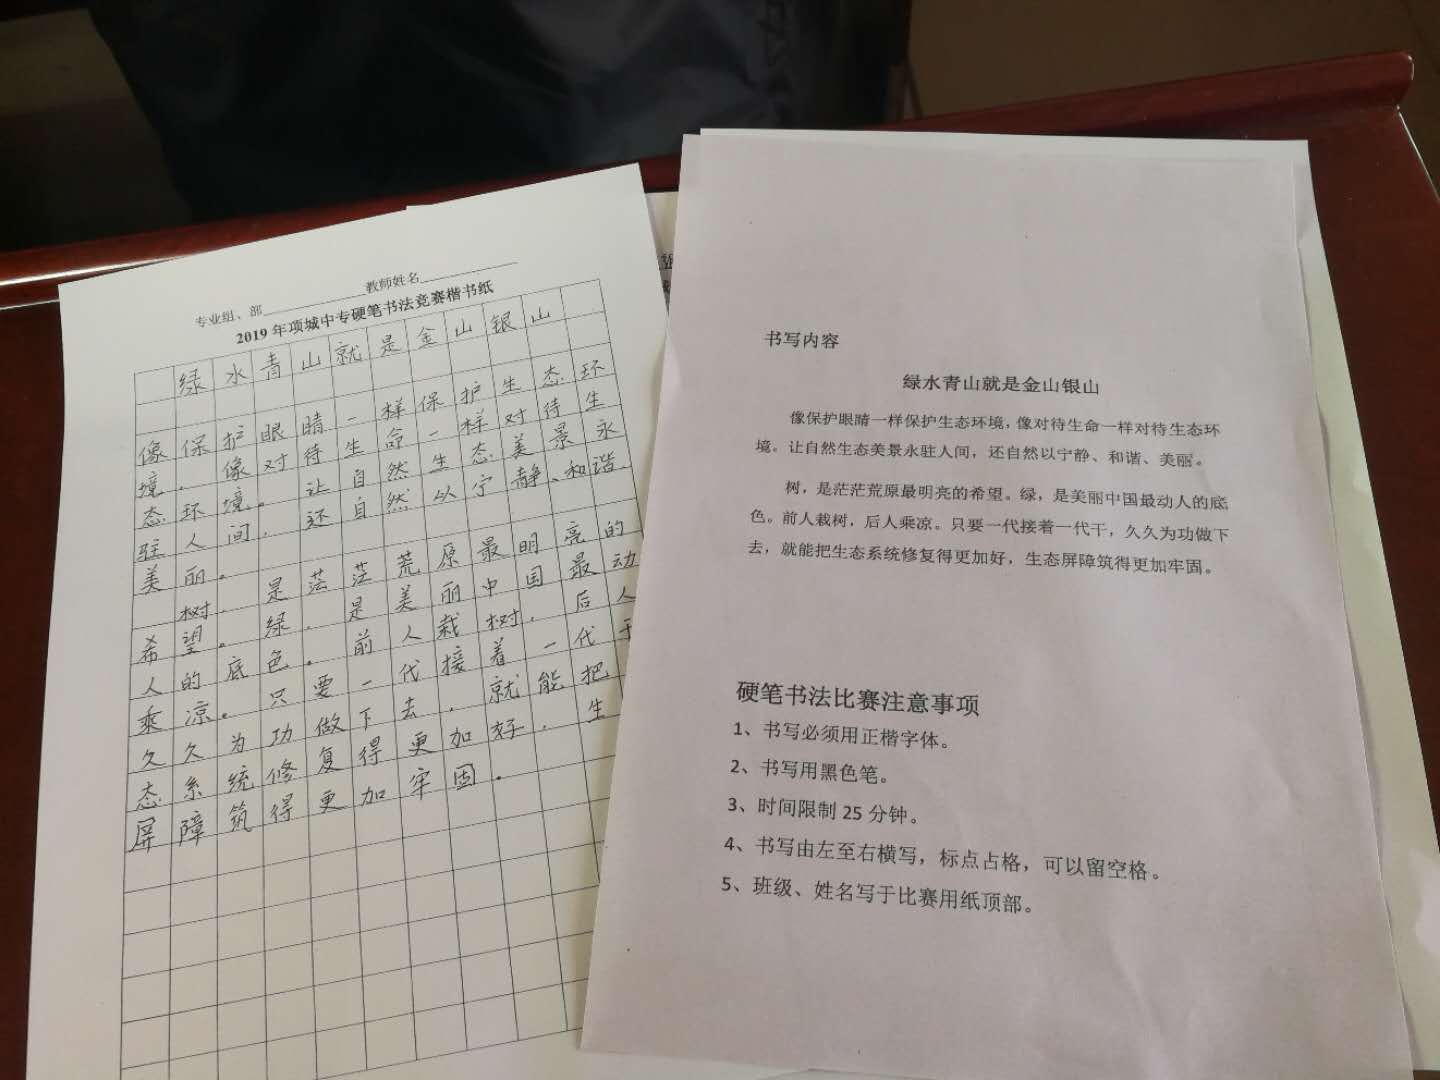 专业组、部 教师姓名
2019 年项城中专硬笔书法竞赛楷书纸
绿水青山就是金山银山
像保护眼睛一样保护生态环
境.像对待生命一样对待生
态环境。让自然生态美景永
驻人间.还自然以宁静、和谐.
美丽。
树.是茫茫荒原最明亮的
希望。绿.是美丽中国最动
人的底色。前人栽树.后人
乘凉。只要一代接着一代干
久久为功做下去.就能把生
态系统修复得更加好.生
屏障筑得更加牢固.
书写内容
绿水青山就是金山银山
像保护眼睛一样保护生态环境,像对待生命一样对待生态环
境。让自然生态美景永驻人间，还自然以宁静、和谐、美丽。
树，是茫茫荒原最明亮的希望。绿，是美丽中国最动人的底
色。前人栽树，后人乘凉。只要一代接着一代干，久久为功做下
去，就能把生态系统修复得更加好，生态屏障筑得更加牢固。
硬笔书法比赛注意事项
1、书写必须用正楷字体。
2、书写用黑色笔。
3、时间限制 25 分钟。
4、书写由左至右横写，标点占格，可以留空格。
5、班级、姓名写于比赛用纸顶部。